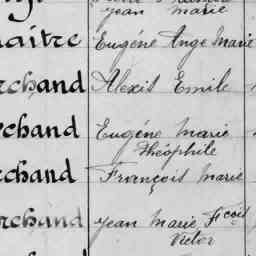 jean marie
aitre Eugéne Ange Marie
rchand Alexis Emile
rchand Eugéne Marie
Théophile
rchand François Marie
rchand jean Marie Fcois
Victor